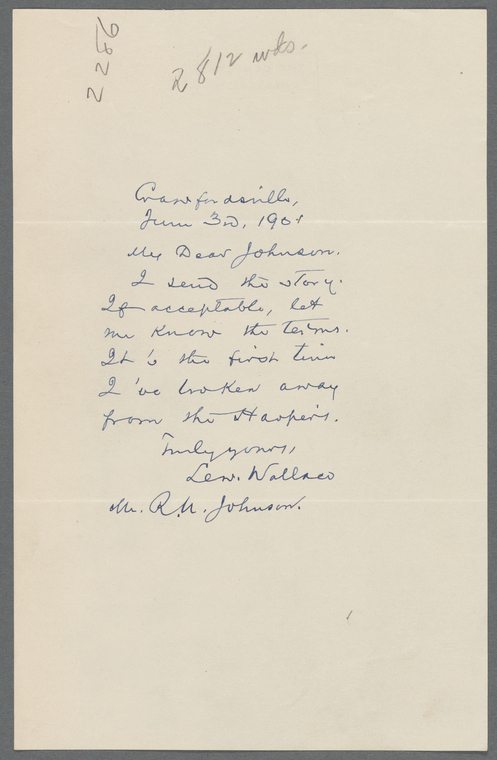 2266
2812 wds.
Crawfordsville,
June 3rd, 1901
My Dear Johnson.
I send the story.
If acceptable, let
me know the terms.
It is the first time
I've broken away
from the Harpers.
Truly yours,
Lew. Wallace
Mr. R.U. Johnson.